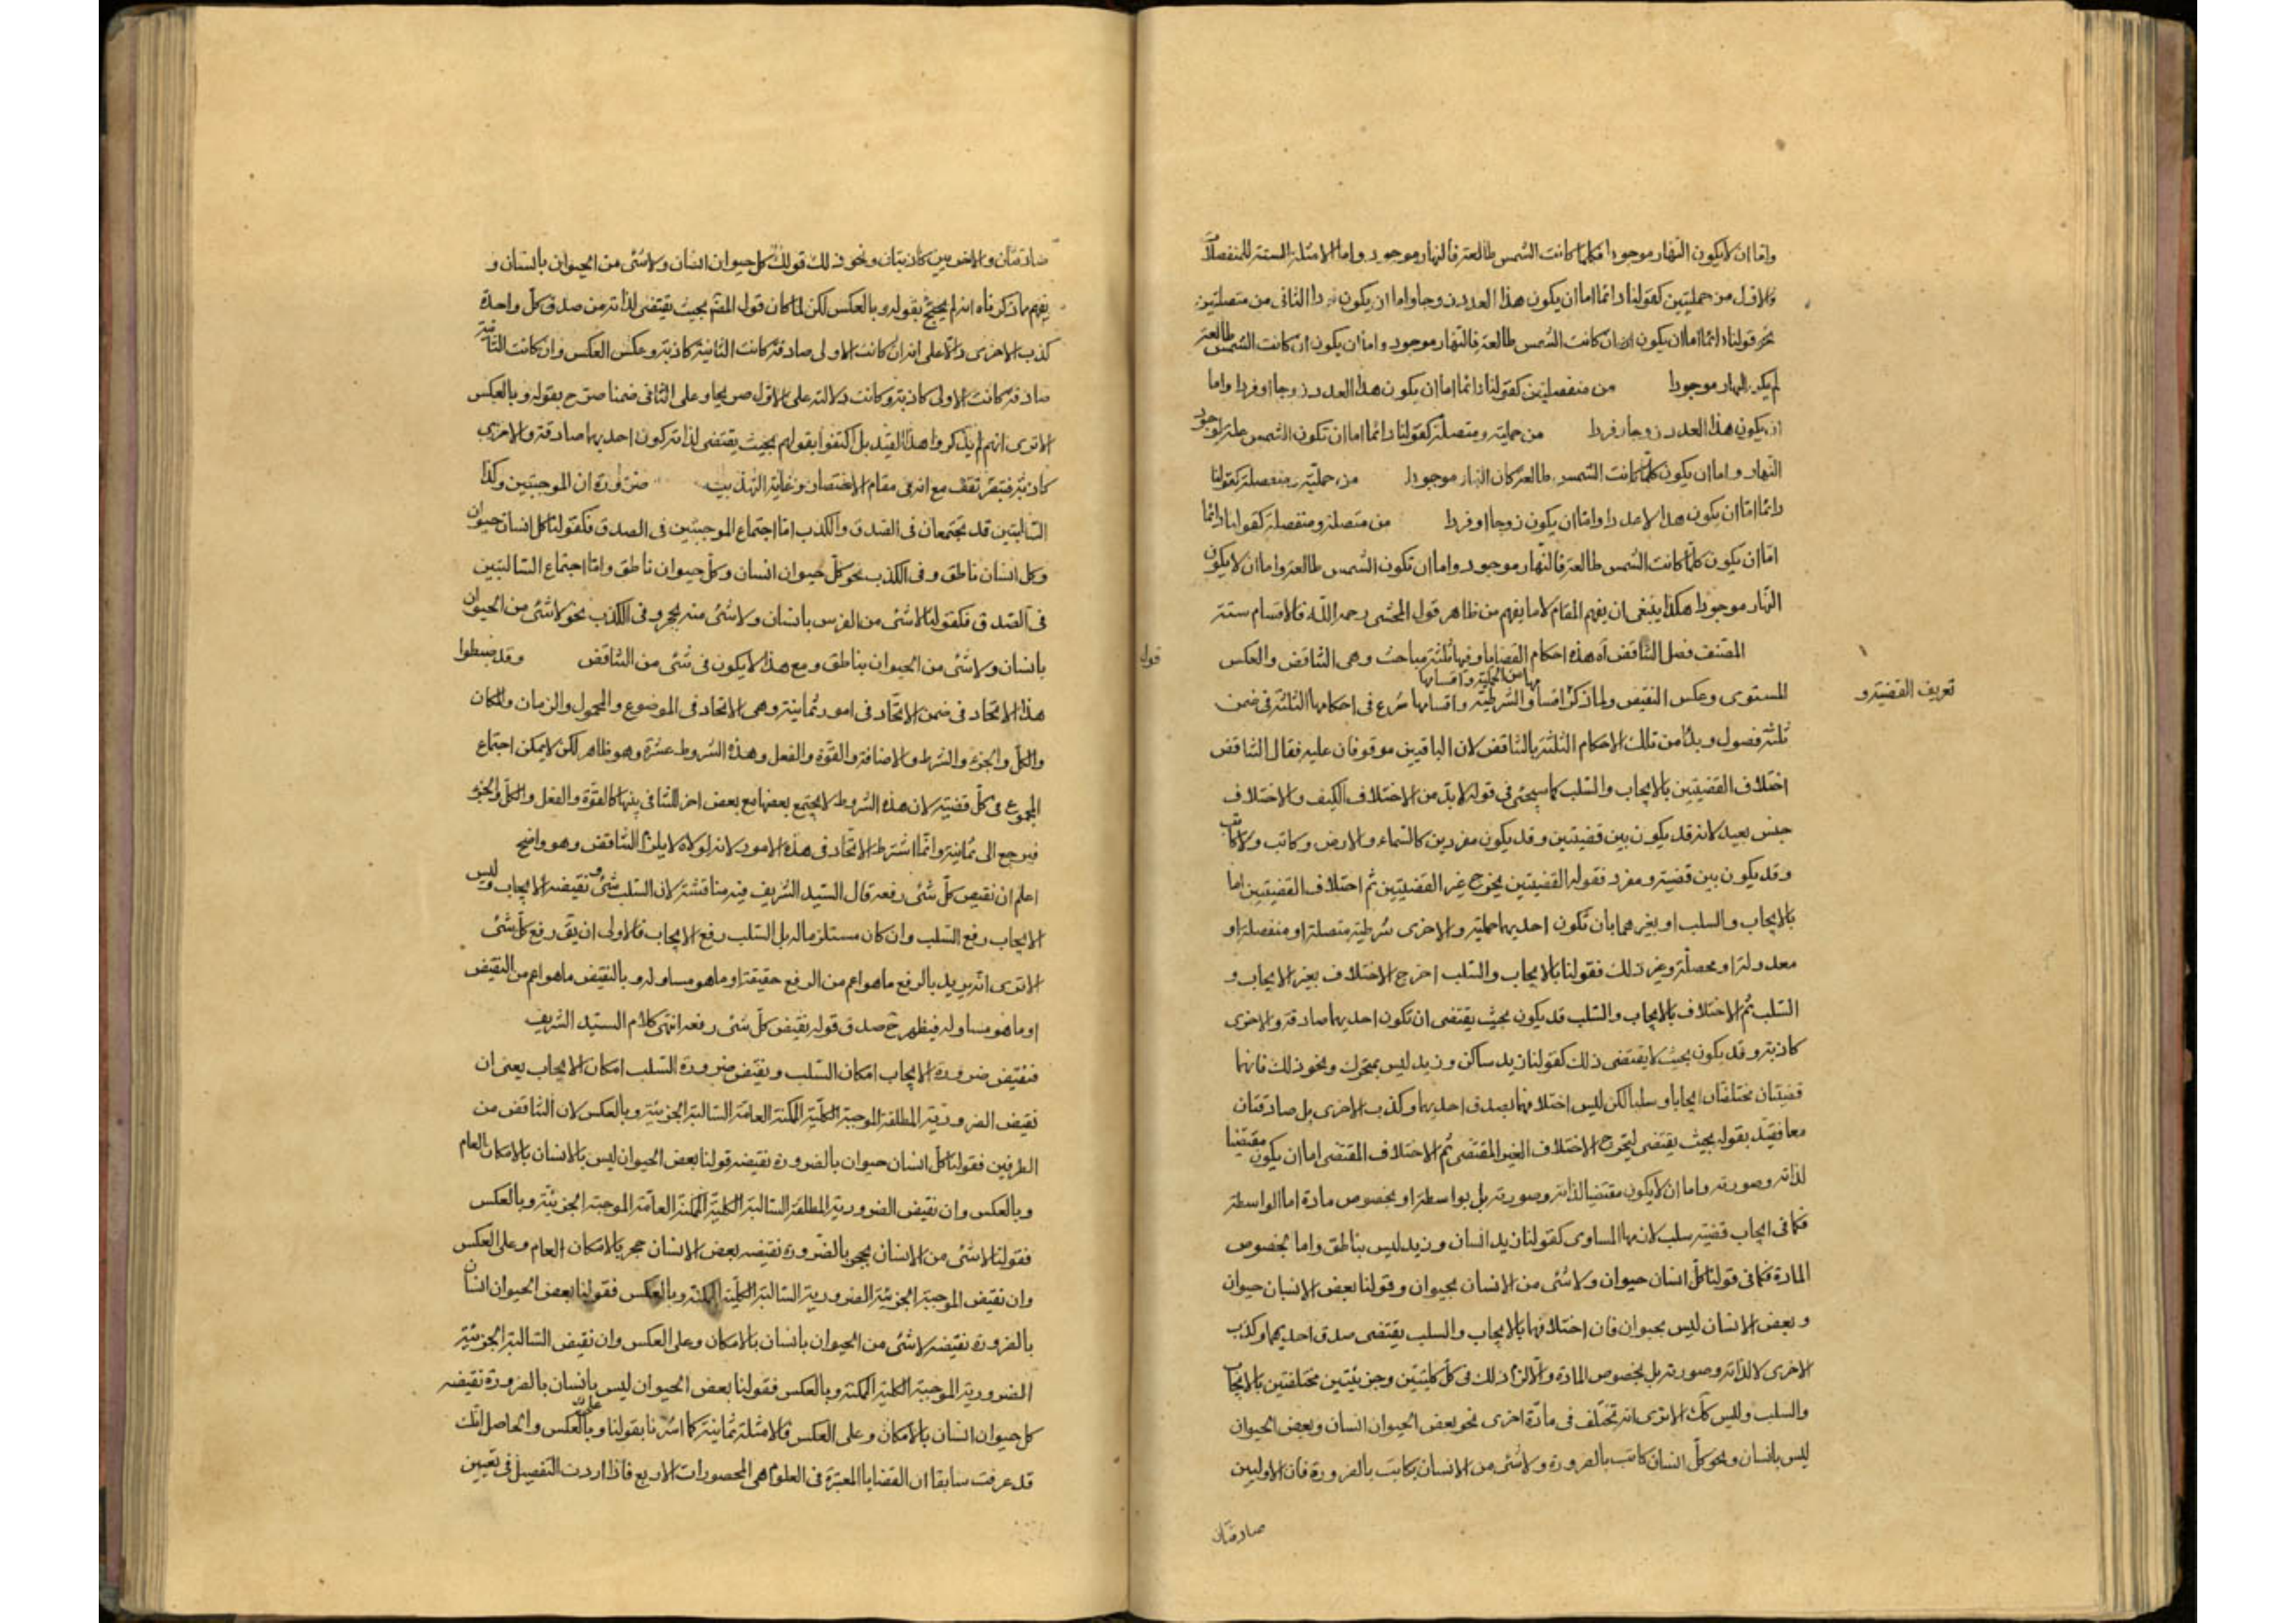 واما ان لا يكون النهار موجودا فكلما كانت الشمس طالعة فالنهار موجود واما الامثلة الستة للمنفصلات
فالاول من حمليتين كقولنا دائما اما ان يكون هذا العدد زوجا واما ان يكون فردا الثاني من متصلتين
نحو قولنا دائما اما ان يكون ان كانت الشمس طالعة فالنهار موجود واما ان يكون ان كانت الشمس طالعة
لم يكن النهار موجودا من منفصلتين كقولنا دائما اما ان يكون هذا العدد زوجا او فردا واما
ان يكون هذا العدد زوجا او فردا من حملية ومتصلة كقولنا دائما اما ان تكون الشمس علة لوجود
النهار واما ان يكون كلما كانت الشمس طالعة كان النهار موجودا من حملية ومنفصلة كقولنا
دائما اما ان يكون هذا لا عددا واما ان يكون زوجا او فردا من متصلة ومنفصلة كقولنا دائما
اما ان يكون كلما كانت الشمس طالعة فالنهار موجود واما ان تكون الشمس طالعة واما ان لا يكون
النهار موجودا هكذا ينبغي ان يفهم المقام لا ما يفهم من ظاهر قول المحشي رحمه الله فالاقسام ستة
قوله
المصنف فصل التناقض اه هذه احكام القضايا وفيها ثلثة مباحث وهي التناقض والعكس
تعريف القضية و
المستوى وعكس النقيض ولما ذكر اقسام الشرطية واقسامها شرع في احكامها الثلثة في ضمن
ثلثة فصول وبدأ من تلك الاحكام الثلثة بالتناقض لان الباقيين موقوفان عليه فقال التناقض
اختلاف القضيتين بالايجاب والسلب كما سيجئ في قوله لا بد من الاختلاف الكيف والاختلاف
جنس بعيد لانه قد يكون بين قضيتين وقد يكون مفردين كالسماء والارض وكاتب ولا كاتب
وقد يكون بين قضية ومفرد فقوله القضيتين يخرج غير القضيتين ثم اختلاف القضيتين اما
بالايجاب والسلب او بغيرهما بان تكون احديهما حملية والاخرى شرطية متصلة او منفصلة او
معدولة او محصلة وغير ذلك فقولنا بالايجاب والسلب اخرج الاختلاف بغير الايجاب و
السلب ثم الاختلاف بالايجاب والسلب قد يكون بحيث يقتضى ان تكون احديهما صادقة والاخرى
كاذبة وقد يكون بحيث لا يقتضى ذلك كقولنا زيد ساكن وزيد ليس بمتحرك ونحو ذلك فانهما
قضيتان مختلفتان ايجابا وسلبا لكن ليس اختلافهما بصدق احديهما وكذب الاخرى بل صادقتان
معا فقيد بقوله بحيث يقتضى ليخرج الاختلاف الغير المقتضى ثم الاختلاف المقتضى اما ان يكون مقتضيا
لذاته وصورته واما ان لا يكون مقتضيا لذاته وصورته بل بواسطة او بخصوص مادة اما الواسطة
فكما في ايجاب قضية سلب لازمها المساوى كقولنا زيد انسان وزيد ليس بناطق واما بخصوص
المادة فكما في قولنا كل انسان حيوان ولا شئ من الانسان بحيوان وقولنا بعض الانسان حيوان
وبعض الانسان ليس بحيوان فان اختلافهما بالايجاب والسلب يقتضى صدق احديهما وكذب
الاخرى لا لذاته وصورته بل بخصوص المادة والا لزم ذلك في كل كليتين وجزئيتين مختلفتين بالايجاب
والسلب وليس كك الا ترى انه تختلف في مادة اخرى نحو بعض الحيوان انسان وبعض الحيوان
ليس بانسان ونحو كل انسان كاتب بالضرورة ولا شئ من الانسان بكاتب بالضرورة فان الاوليين
صادقتان
صادقتان والاخريين كاذبتان ونحو ذلك قولك كل حيوان انسان ولا شئ من الحيوان بانسان و
يفهم مما ذكرناه انه لم يحتج بقوله وبالعكس لكن لما كان قول المصنف بحيث يقتضى لذاته من صدق كل واحدة
كذب الاخرى دالا على انه ان كانت الاولى صادقة كانت الثانية كاذبة وعكس العكس وان كانت الثانية
صادقة كانت الاولى كاذبة وكانت دلالته على الاول صريحا وعلى الثاني ضمنا صرح بقوله وبالعكس
الا ترى انهم لم يذكروا هذا القيد بل اكتفوا بقولهم بحيث يقتضى لذاته كون احديهما صادقة والاخرى
كاذبة فتبصر تقف مع انه في مقام الاختصار وغاية التهذيب ضرورة ان الموجبتين وكذا
السالبتين قد يجتمعان في الصدق والكذب اما اجتماع الموجبتين في الصدق فكقولنا كل انسان حيوان
وكل انسان ناطق وفي الكذب نحو كل حيوان انسان وكل حيوان ناطق واما اجتماع السالبتين
في الصدق فكقولنا لا شئ من الفرس بانسان ولا شئ منه بحجر وفي الكذب نحو لا شئ من الحيوان
بانسان ولا شئ من الحيوان بناطق ومع هذا لا يكون في شئ من التناقض وقد ضبطوا
هذا الاتحاد في ضمن الاتحاد في امور ثمانية وهي الاتحاد في الموضوع والمحمول والزمان والمكان
والكل والجزء والشرط والاضافة والقوة والفعل وهذه الشروط عشرة وهو ظاهر لكن لا يمكن اجتماع
المجموع في كل قضية لان هذه الشروط لا يجتمع بعضها مع بعض اخر للتنافى بينها كالقوة والفعل والكل والجزء
فيرجع الى ثمانية وانما اشترط الاتحاد في هذه الامور لانه لولاه لا يلزم التناقض وهو واضح
اعلم ان نقيض كل شئ رفعه قال السيد الشريف فيه مناقشة لان السلب شئ ونقيضه الايجاب وليس
الايجاب رفع السلب وان كان مستلزما له بل السلب رفع الايجاب فالاولى ان يق رفع كل شئ
الا ترى انه يريد بالرفع ما هو اعم من الرفع حقيقة او ما هو مساو له وبالنقيض ما هو اعم من النقيض
او ما هو مساو له فيظهر ح صدق قوله نقيض كل شئ رفعه انتهى كلام السيد الشريف
فنقيض ضرورة الايجاب امكان السلب ونقيض ضرورة السلب امكان الايجاب يعنى ان
نقيض الضرورية المطلقة الموجبة الكلية الممكنة العامة السالبة الجزئية وبالعكس لان التناقض من
الطرفين فقولنا كل انسان حيوان بالضرورة نقيضه قولنا بعض الحيوان ليس بالانسان بالامكان العام
وبالعكس وان نقيض الضرورية المطلقة السالبة الكلية الممكنة العامة الموجبة الجزئية وبالعكس
فقولنا لا شئ من الانسان بحجر بالضرورة نقيضه بعض الانسان حجر بالامكان العام وعلى العكس
وان نقيض الموجبة الجزئية الضرورية السالبة الكلية الممكنة وبالعكس فقولنا بعض الحيوان انسان
بالضرورة نقيضه لا شئ من الحيوان بانسان بالامكان وعلى العكس وان نقيض السالبة الجزئية
الضرورية الموجبة الكلية الممكنة وبالعكس فقولنا بعض الحيوان ليس بانسان بالضرورة نقيضه
كل حيوان انسان بالامكان وعلى العكس فالامثلة ثمانية كما اشرنا بقولنا وبالعكس والحاصل انك
قد عرفت سابقا ان القضايا المعتبرة في العلوم هي المحصورات الاربع فاذا اردت التفصيل في تعيين